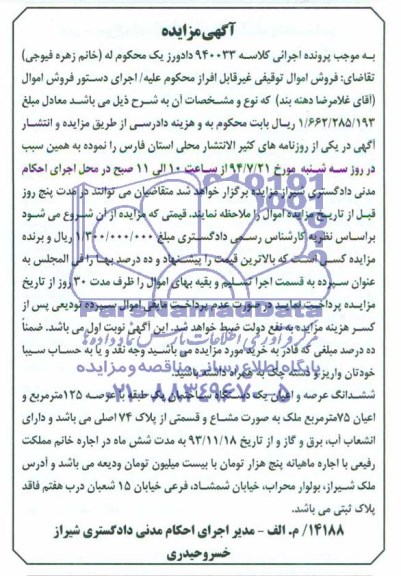 آگهی مزایده
به موجب پرونده اجرائی کلاسه ۹۴۰۰۳۳ دادورز یک محکوم له (خانم زهره فیوجی)
تقاضای: فروش اموال توقیفی غیرقابل افراز محکوم علیه/ اجرای دستور فروش اموال
(آقای غلامرضا دهنه بند) که نوع و مشخصات آن به شرح ذیل می باشد معادل مبلغ
۱/۶۶۲/۲۸۵/۱۹۳ ریال بابت محکوم به و هزینه دادرسی از طریق مزایده و انتشار
آگهی در یکی از روزنامه های کثیر الانتشار محلی استان فارس را نموده به همین سبب
در روز سه شنبه مورخ ۹۴/۷/۲۱ از ساعت ۱۰ الی ۱۱ صبح در محل اجرای احکام
مدنی دادگستری شیراز مزایده برگزار خواهد شد متقاضیان می توانند در مدت پنج روز
قبل از تاریخ مزایده اموال را ملاحظه نمایند. قیمتی که مزایده از آن شروع می شود
براساس نظریه کارشناس رسمی دادگستری مبلغ ۱/۳۰۰/۰۰۰/۰۰۰ ریال و برنده
مزایده کسی است که بالاترین قیمت را پیشنهاد و ده درصد بها را فی المجلس به
عنوان سپرده به قسمت اجرا تسلیم و بقیه بهای اموال را ظرف مدت ۳۰ روز از تاریخ
مزایده پرداخت نماید در صورت عدم پرداخت مابقی اموال سپرده تودیعی پس از
کسر هزینه مزایده به نفع دولت ضبط خواهد شد. این آگهی نوبت اول می باشد. ضمناً
ده درصد مبلغی که قادر به خرید مورد مزایده می باشید وجه نقد و یا به حساب سیبا
خودتان واریز و دسته چک به همراه داشته باشید.
ششدانگ عرصه و اعیان یک دستگاه ساختمان یک طبقه با عرصه ۱۲۵مترمربع و
اعیان ۷۵مترمربع ملک به صورت مشاع و قسمتی از پلاک ۷۴ اصلی می باشد و دارای
انشعاب آب، برق و گاز و از تاریخ ۹۳/۱۱/۱۸ به مدت شش ماه در اجاره خانم مملکت
رفیعی با اجاره ماهیانه پنج هزار تومان با بیست میلیون تومان ودیعه می باشد و آدرس
ملک شیراز، بولوار محراب، خیابان شمشاد، فرعی خیابان ۱۵ شعبان درب هفتم فاقد
پلاک ثبتی می باشد.
۱۴۱۸۸/ م. الف - مدیر اجرای احکام مدنی دادگستری شیراز
خسرو حیدری
ParsNamadData
پایگاه اطلاع رسانی مناقصه و مزایده
۰۲۱-۸۸۳۴۹۶۷۰-۵